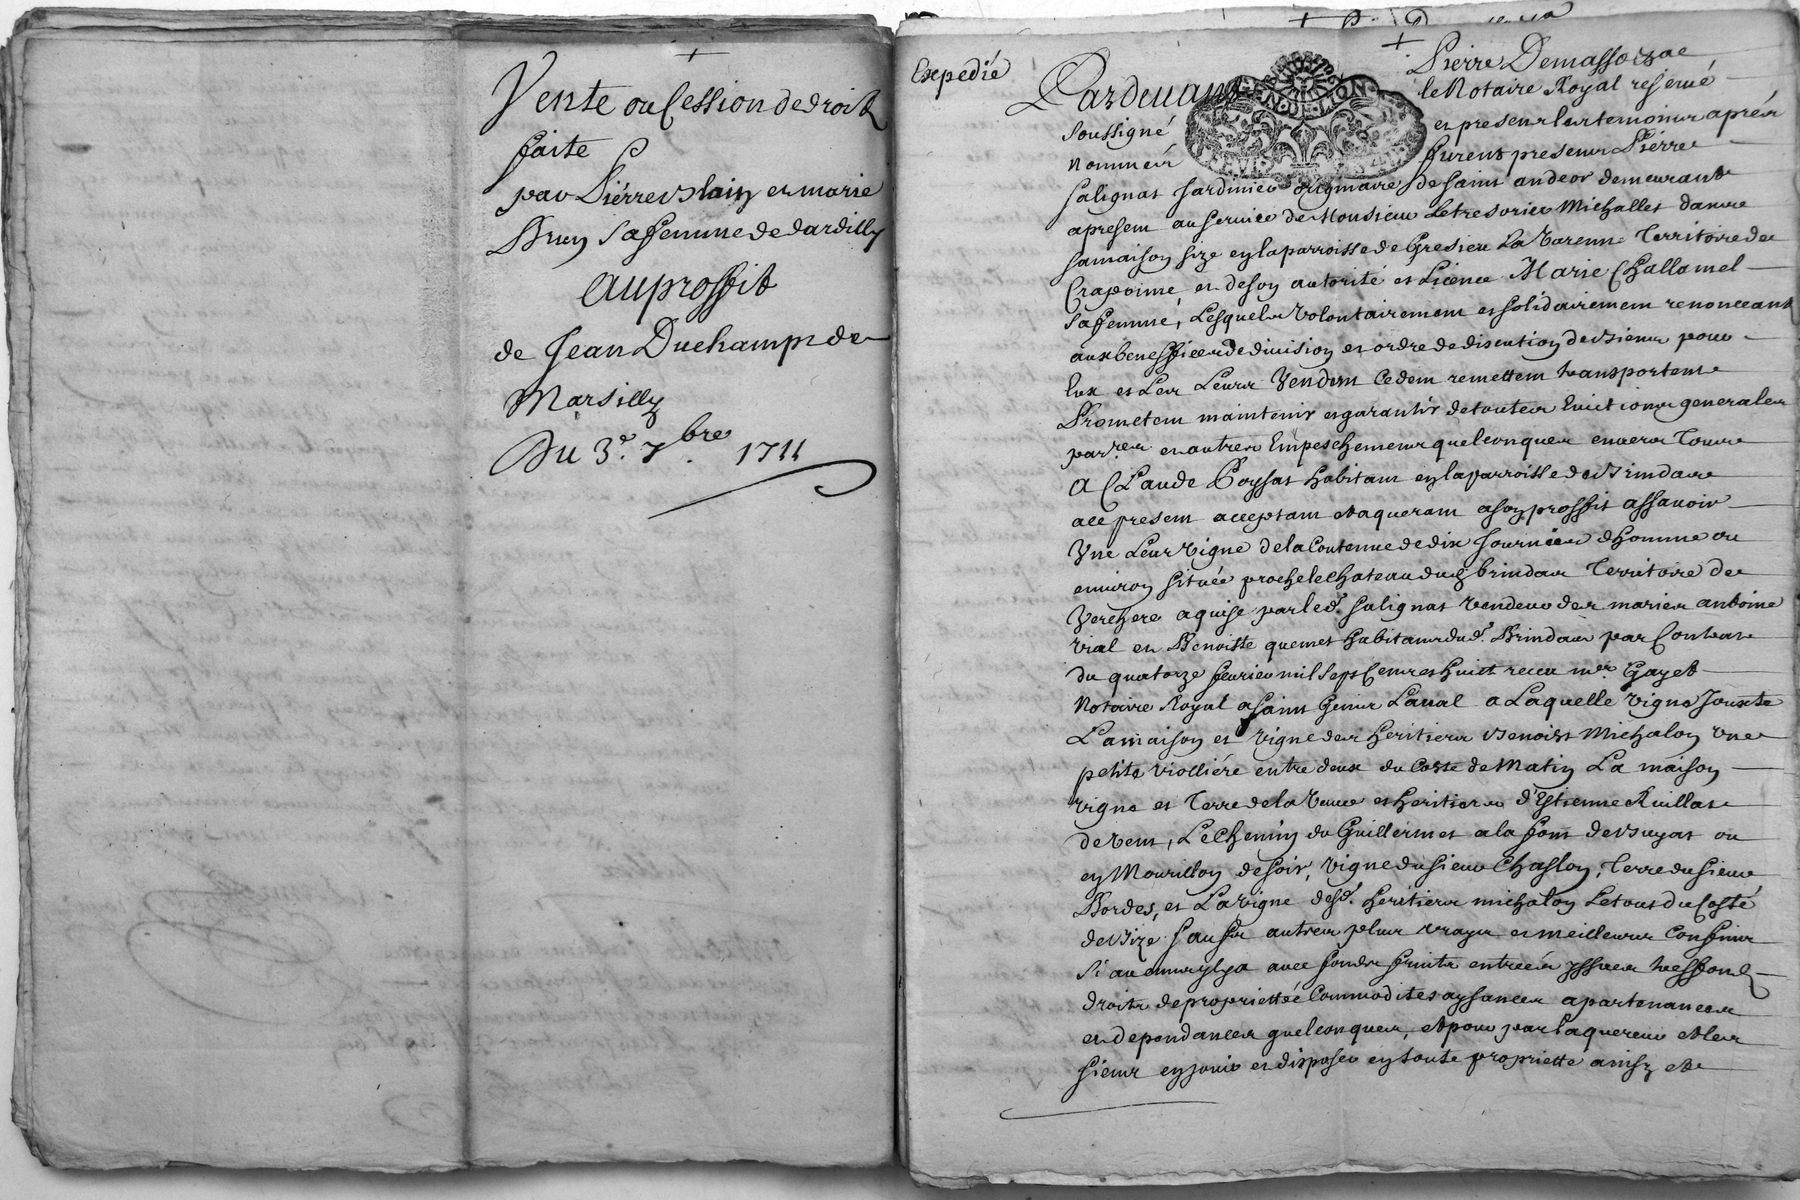 +
Vente ou Cession de droit
faite
par Pierre Blain et marie
Brun sa femme de dardilly
au proffit
de Jean Duchamp de
Marsilly
Du 3e. 7bre. 1711
Expedié
+
Pardevant Pierre Demassozac
le Notaire Royal reservé
soussigné et presens les temoins aprés
nommés furent presens Pierre
salignat Jardinier originaire de saint andeol demeurant
apresent au service de Monsieur Le tresorier Michallet dans
sa maison size en la parroisse de Gresieu La Varenne Territoire de
Craponne, et de son autorité et Licence Marie Challamel
sa femme, Lesquels volontairement et solidairement renonceant
aux beneffices de division et ordre de discution de biens pour
Eux et Les Leurs Vendent Cedent remettent transportent
Prometent maintenir et garantir de toutes Evictions generales
par.res et autres Empeschemens quelconques envers Tous
a Claude Poyssat habitant en la parroisse de Brindas
icy present acceptant et aquerant a son proffit assavoir
Une Leur vigne de la Contenue de dix Journées d'homme ou
environ située proche le chateau dud brindas Territoire de
Verchere aquise par led. salignat vendeur des mariés antoine
vial et Benoitte quemet habitans dud. Brindas par Contrat
du quatorze fevrier mil sept Cent et huict receu mer. Gayet
Notaire Royal a saint Genis Laval a Laquelle vigne Jouxte
La maison et vigne des heritiers Benoist Michalon une
petite viollière entre deux du Coste de Matin La maison
vigne et Terre de la Veuve et heritiers d'Estienne Ruillat
de vent, Le Chemin du Guillermet a la font de Buyat ou
en Mourillon de soir, vigne du sieur Chaslon, Terre du sieur
Bordes, et La vigne desd. heritiers michalon Le tout du Costé
de Bize sauf autres plus vrays et meilleurs Confins
si aucuns y a avec fonds fruits entrées yssues tresfond
droits de propriettée Commodites aysances apartenances
et dependances quelconques, et pour par l'aquereur et les
siens en jouir et disposer en toute propriette ainsy et